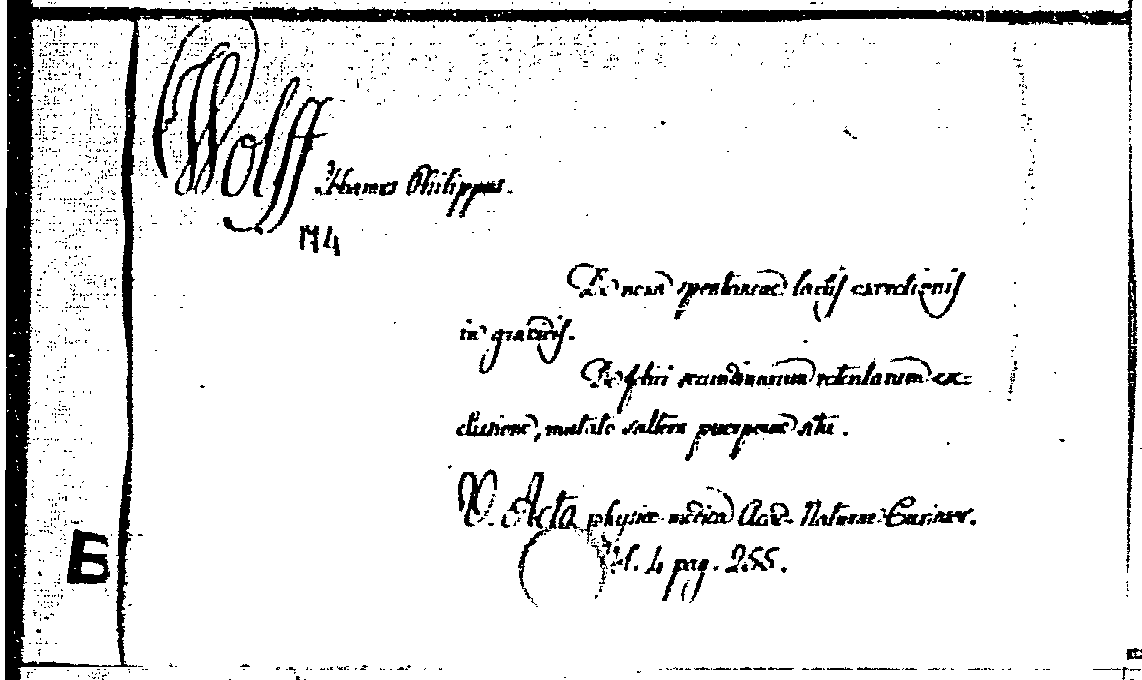 Wolff Johannes Philippus.
M4
De noxa spontaneae lactis excretionis
in gravidis.
De felici secundinarum retentarum ex=
clusione, mutato saltem puerperae situ.
V. Acta physico medica Acad. Naturae Curiosor.
Vol. 4 pag. 255.
Б